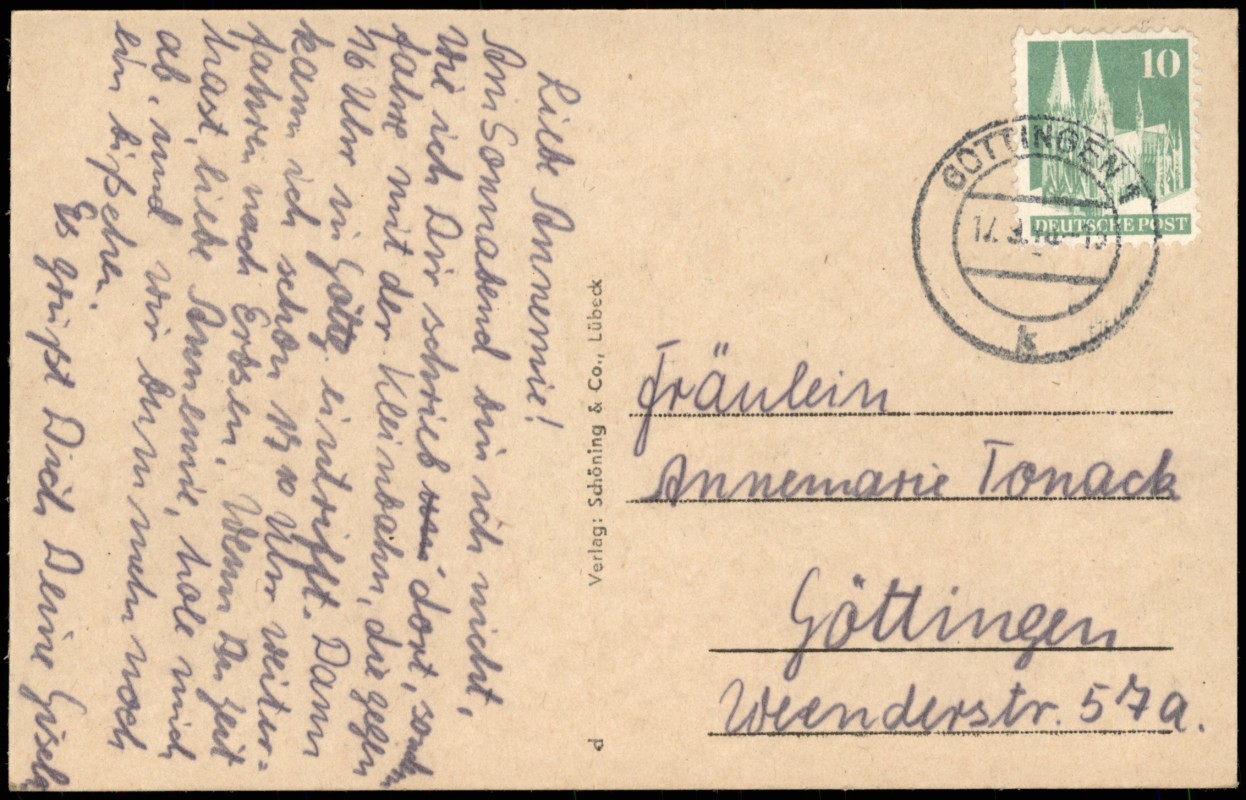 Liebe Annemie!
Am Sonnabend bin ich nicht,
wie ich Dir schrieb dort, sondern
fahre mit der Kleinbahn, die gegen
16 Uhr in Göttg eintrifft. Dann
kann ich schon 17 10 Uhr weiter-
fahren nach Erbsen. Wenn Du Zeit
hast, liebe Annemie, hole mich
ab, und wir bummeln noch
ein bißchen.
Es grüßt Dich Deine Gisela
Verlag: Schöning & Co., Lübeck
d
10
DEUTSCHE POST
GÖTTINGEN 1
17. 3.
k
Fräulein
Annemarie Tonack
Göttingen
Weenderstr. 57a.